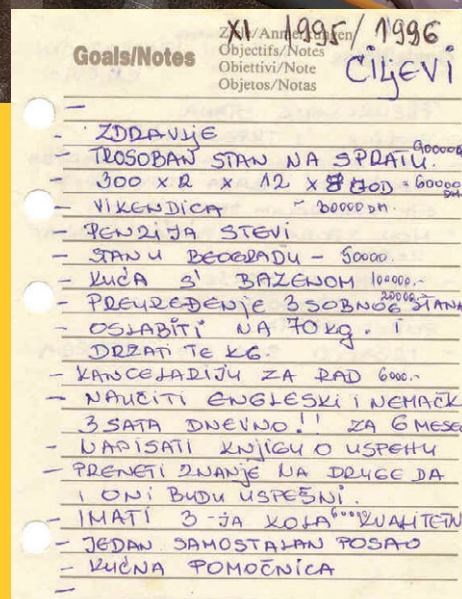 XI 1995/1996
Goals/Notes
Ziele/Anmerkungen
Objectifs/Notes
Obiettivi/Note
Objetos/Notas
CILJEVI
-
- ZDRAVLJE
- TROSOBAN STAN NA SPRATU.
- 300 X 2 X 12 X 8 GOD = 60000
- VIKENDICA - 30000 DM.
- PENZIJA STEVI
- STAN U BEOGRADU - 50000.
- KUĆA S' BAZENOM 100000.-
- PREUREĐENJE 3 SOBNOG STANA 20000.-
- OSLABITI NA 70 KG. I
DRŽATI TE KG.
- KANCELARIJU ZA RAD 6000.-
- NAUČITI ENGLESKI I NEMAČK
3 SATA DNEVNO!! ZA 6 MESE
- NAPISATI KNJIGU O USPEHU
- PRENETI ZNANJE NA DRUGE DA
I ONI BUDU USPEŠNI.
- IMATI 3-JA KOLA KVALITETN
- JEDAN SAMOSTALAN POSAO
- KUĆNA POMOĆNICA
-